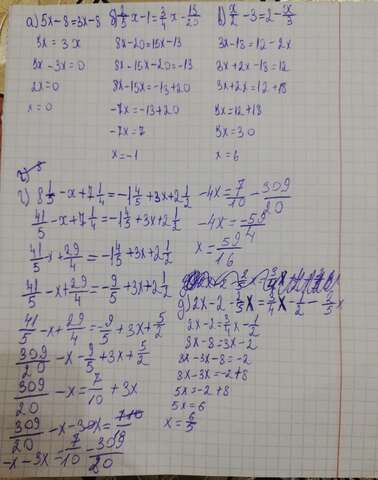 а) 5x-8=3x-8
5x=3x
5x-3x=0
2x=0
x=0
x-1=3/4x-13/20
8x-20=15x-13
8x-15x-20=-13
8x-15x=-13+20
-7x=-13+20
-7x=7
x=-1
в) x/2-3=2-x/3
3x-18=12-2x
3x+2x-18=12
3x+2x=12+18
5x=12+18
5x=30
x=6
г) 8 1/5-x+7 1/4=-1 4/5+3x+2 1/2
41/5-x+7 1/4=-1 4/5+3x+2 1/2
41/5-x+29/4=-1 4/5+3x+2 1/2
41/5-x+29/4=-9/5+3x+2 1/2
41/5-x+29/4=-9/5+3x+5/2
309/20-x-9/5+3x+5/2
309/20-x=7/10+3x
309/20-x-3x=
-x-3x=7/10-309/20
-4x=7/10-309/20
-4x=-59/4
x=59/16
д) 2x-2-3/5x=3/4x-1/2-3/5x
2x-2=3/4x-1/2
8x-8=3x-2
8x-3x-8=-2
8x-3x=-2+8
5x=-2+8
5x=6
x=6/5